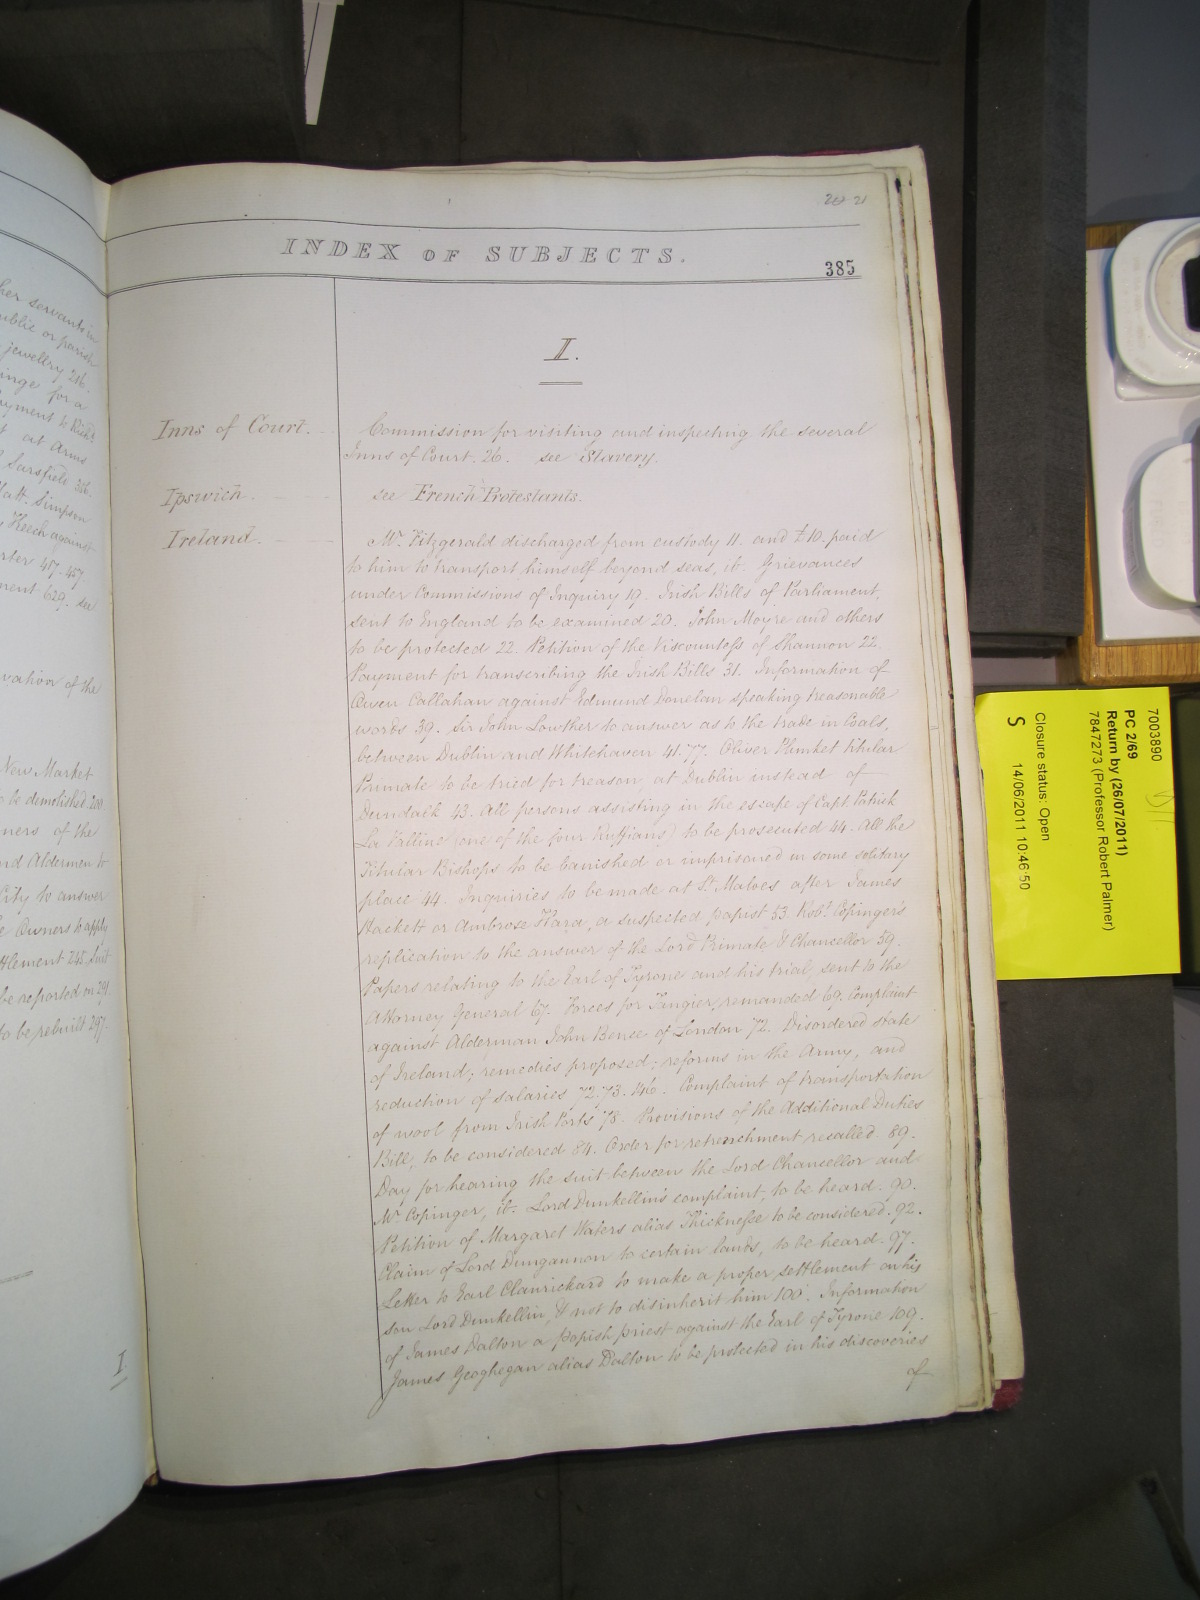 her servants in
public or parish
jewellry 216.
inge for a
ayment to Richd
t at Arms
Sarsfield 386.
Matt. Simpson
Keech against
rter 417. 457.
ment 629. see
vation of the
New Market
to be demolished 200.
ners of the
nd Aldermen to
City to answer
e Owners to apply
ttlement 248. Suit
be reported on 291
to be rebuilt 297.
I.
21
INDEX OF SUBJECTS.
385
I.
Inns of Court.
Commission for visiting and inspecting the several
Inns of Court. 26. see Slavery.
Ipswich.
see French Protestants.
Ireland.
Mr. Fitzgerald discharged from custody 11. and £10. paid
to him to transport himself beyond seas, ib. Grievances
under Commissions of Inquiry 19. Irish Bills of Parliament,
sent to England to be examined 20. John Moyre and others
to be protected 22. Petition of the Viscountess of Shannon 22.
Payment for transcribing the Irish Bills 31. Information of
Owen Callahan against Edmund Donelan speaking treasonable
words 39. Sir John Lowther to answer as to the trade in Coals,
between Dublin and Whitehaven 41. 77. Oliver Plunket titular
Primate to be tried for treason, at Dublin instead of
Dundalk 43. All persons assisting in the escape of Capt. Patrick
La Valline (one of the four Ruffians) to be prosecuted 44. All the
Titular Bishops to be banished or imprisoned in some solitary
place 44. Inquiries to be made at St. Maloes after James
Hackett or Ambrose Hara, a suspected papist 53. Robt. Copinger's
replication to the answer of the Lord Primate & Chancellor 59.
Papers relating to the Earl of Tyrone and his trial, sent to the
Attorney General 67. Forces for Tangier, remanded 69. Complaint
against Alderman John Bence of London 72. Disordered state
of Ireland; remedies proposed; reforms in the Army, and
reduction of salaries 72. 73. 146. Complaint of transportation
of wool from Irish Ports 78. Provisions of the Additional Duties
Bill, to be considered 84. Order for retrenchment recalled. 89.
Day for hearing the suit between the Lord Chancellor and
Mr. Copinger, ib. Lord Dunkellin's complaint, to be heard. 90.
Petition of Margaret Waters alias Thicknesse to be considered. 92.
Claim of Lord Dungannon to certain lands, to be heard. 97.
Letter to Earl Clanrickard to make a proper settlement on his
son Lord Dunkellin, & not to disinherit him 100. Information
of James Dalton a popish priest against the Earl of Tyrone 109.
James Geoghegan alias Dalton to be protected in his discoveries
of
7003890
PC 2/69
Return by (26/07/2011)
7847273 (Professor Robert Palmer)
Closure status: Open
S 14/06/2011 10:46:50